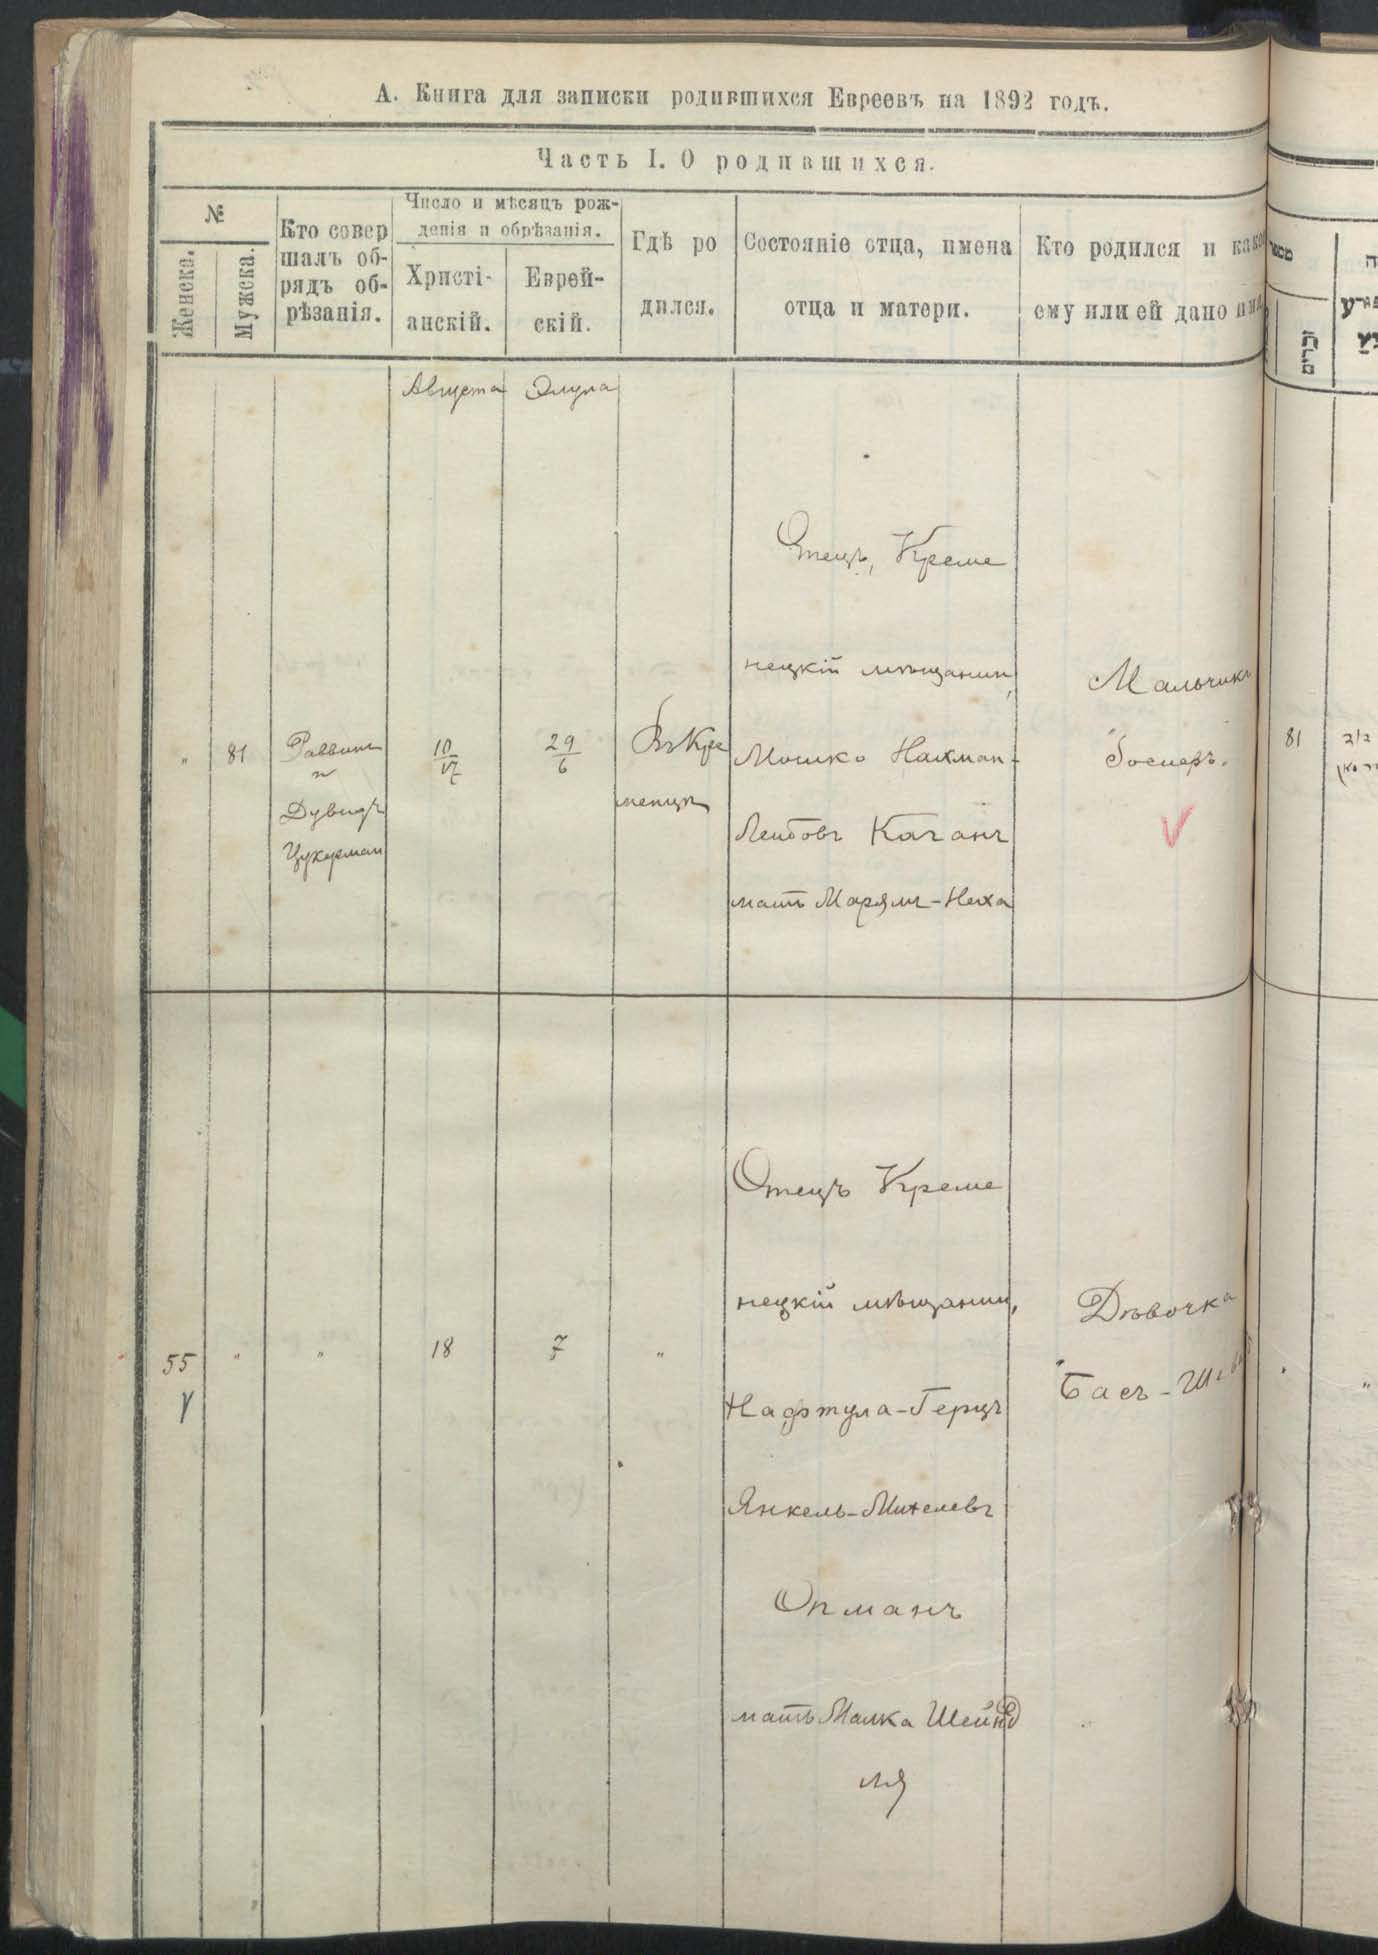 А. Книга для записки родившихся Евреевъ на 1892 годъ.
Часть I. О родившихся.
№
Женска.
Мужска.
Кто совер
шалъ об-
рядъ об-
рѣзанія.
Число и мѣсяцъ рож-
денія и обрѣзанія.
Христі-
анскій.
Еврей-
скій.
Гдѣ ро
дился.
Состояніе отца, имена
отца и матери.
Кто родился и како
ему или ей дано
Августа
Элула
"
81
Раввинъ
и
Дувидъ
Цукерман
10
17
29
6
Въ Кре
менцѣ
Отецъ, Креме
нецкій мѣщанин,
Мошко Нахман-
Лейбовъ Каганъ
мать Марямъ-Неха
Мальчикъ
"Іосиеръ.
55
"
"
18
7
"
Отецъ Креме
нецкій мѣщанин,
Нафтула-Герцъ
Янкель-Михелевъ
Опманъ
мать Малка Шейнд
ля
Дѣвочка
"Басъ-
81
זכרים